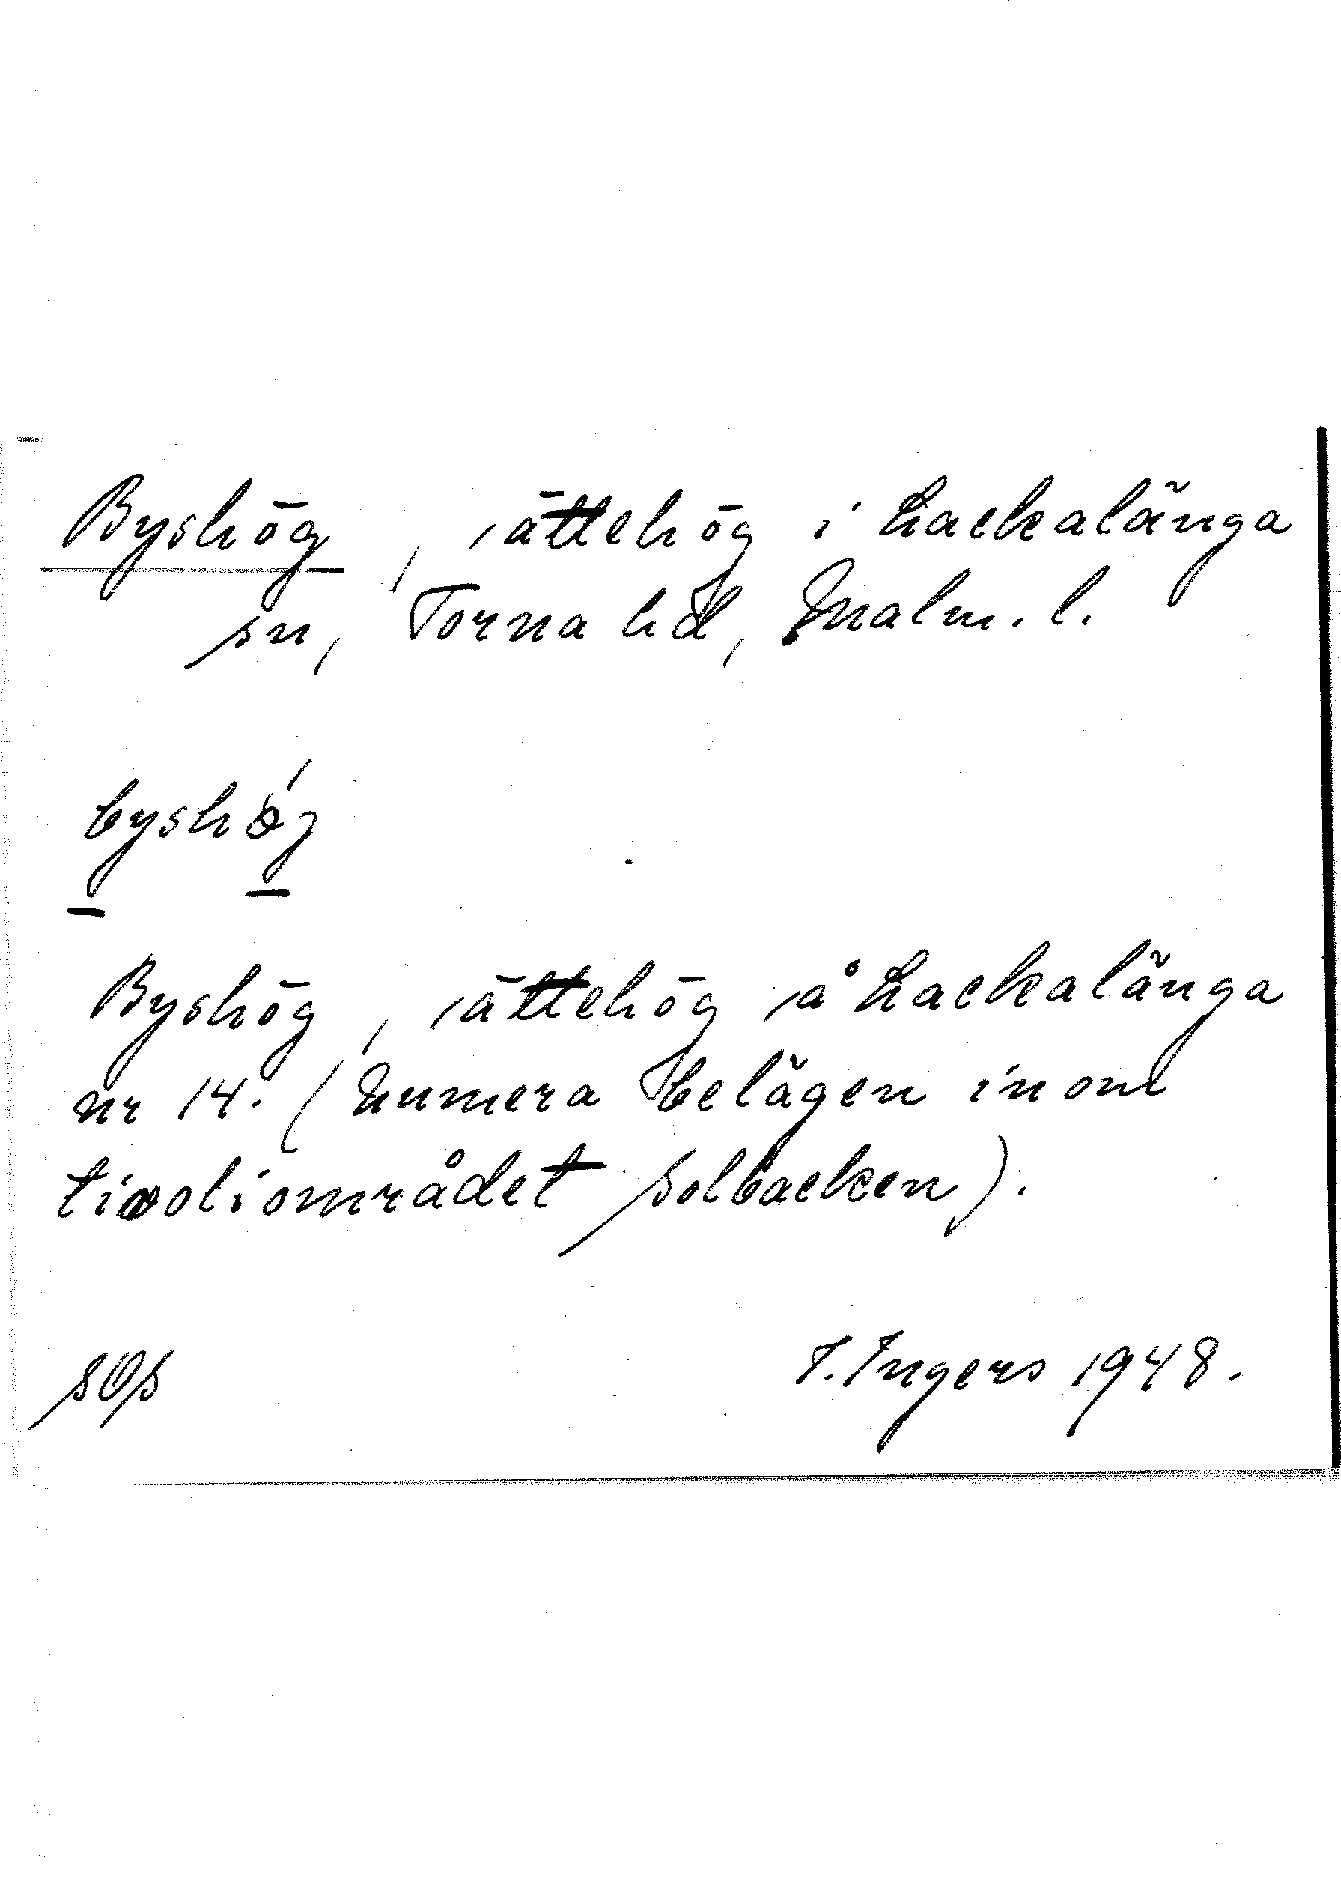 Byshög, ättehög i Lackalänga
sn, Torna hd, Malm. l.
byshǿg
Byshög, ättehög å Lackalänga
nr 14. (Numera belägen inom
tivoliområdet Solbacken).
SOS
I. Ingers 1948.